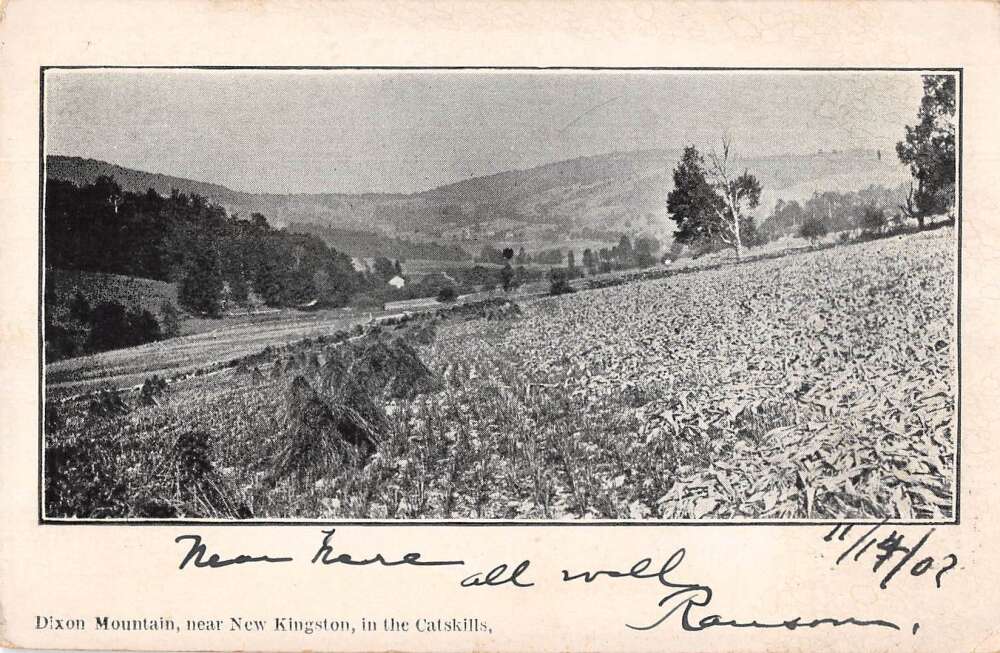 Near here all well
11/14/02
Ransom,
Dixon Mountain, near New Kingston, in the Catskills,